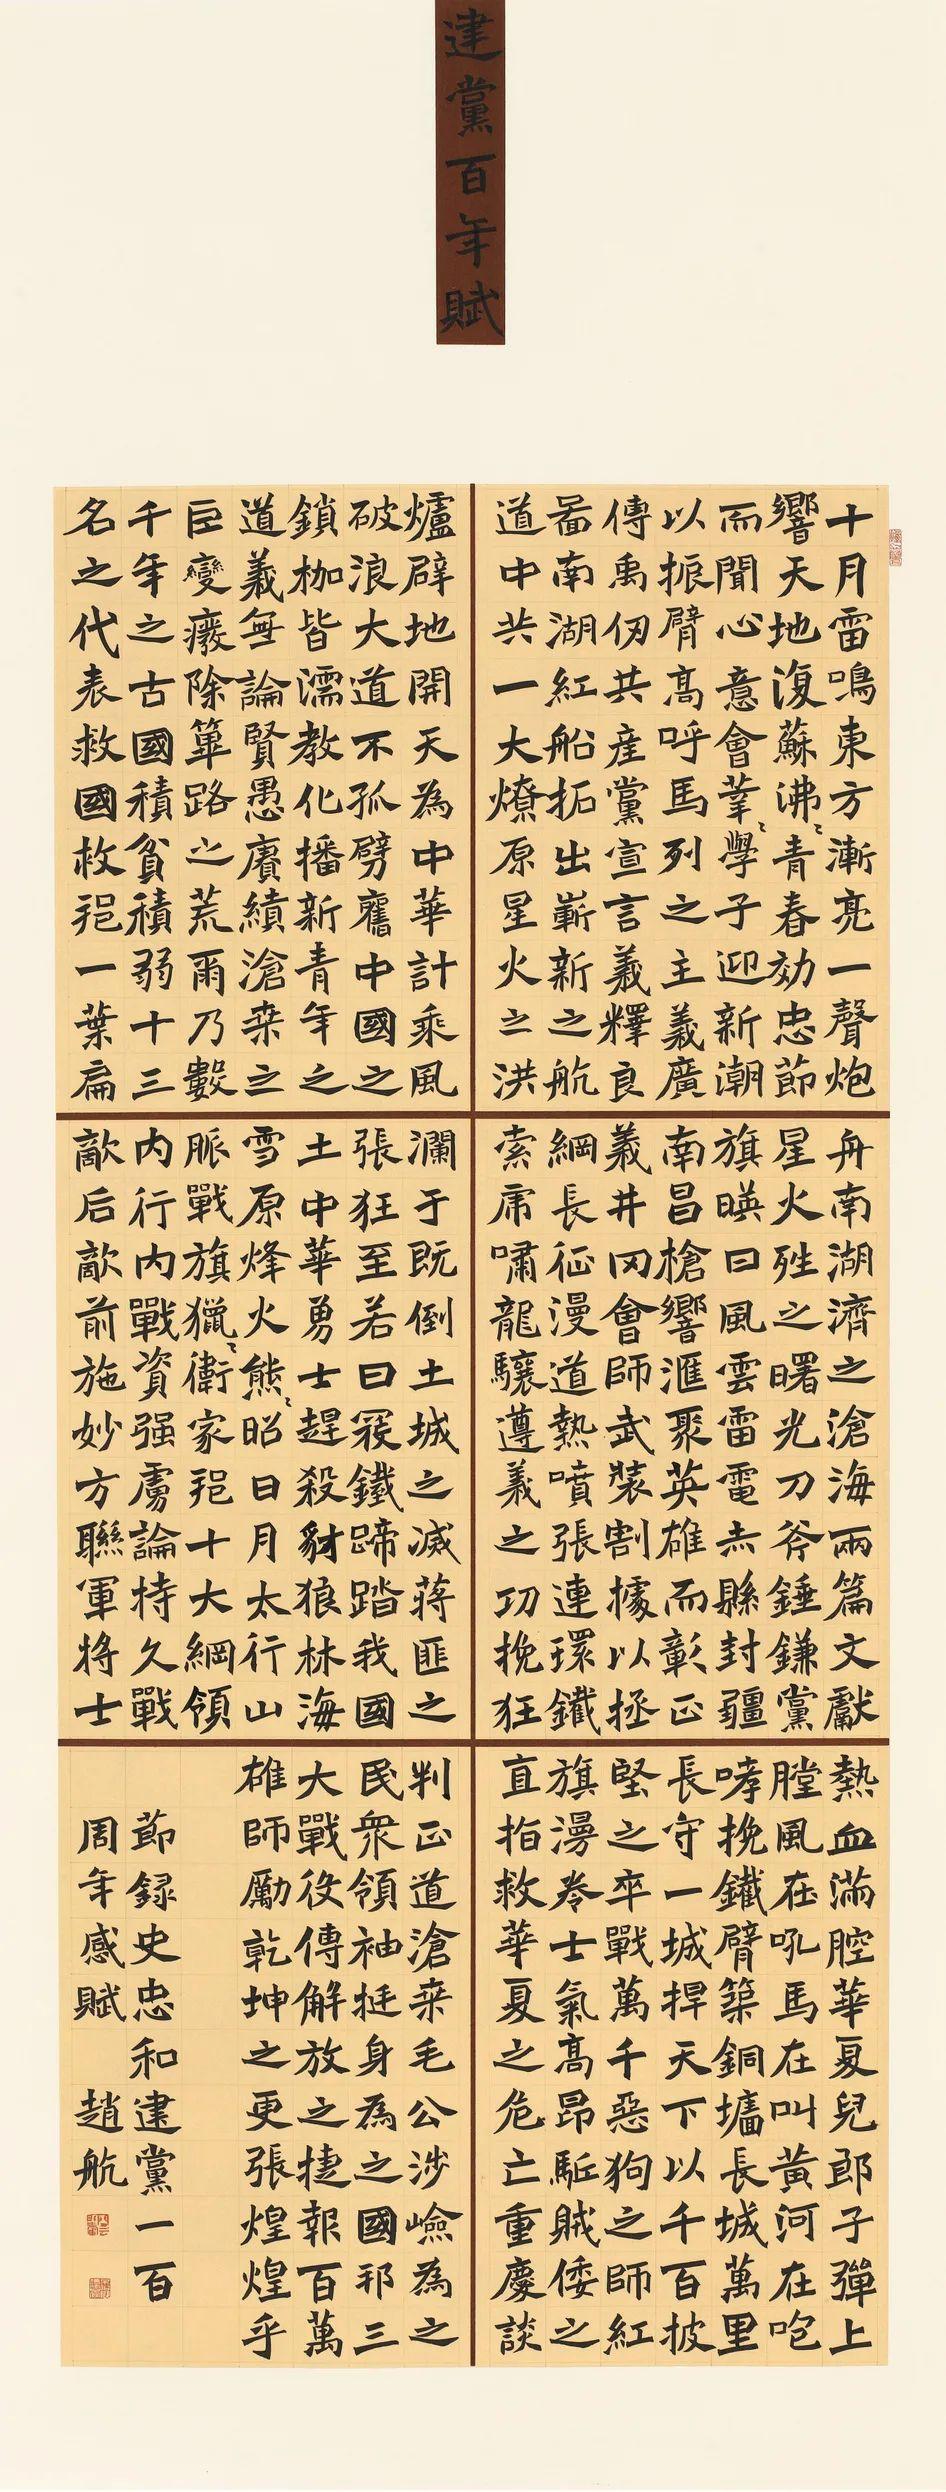 建黨百年賦
十月雷鳴東方漸亮一聲炮
響天地復蘇沸〻青春効忠節
而聞心意會莘〻學子迎新潮
以振臂高呼馬列之主義廣
傳禹仞共產黨宣言義釋良
啚南湖紅船拓出嶄新之航
道中共一大燎原星火之洪
爐辟地開天為中華計乘風
破浪大道不孤劈舊中國之
鎖枷皆濡教化播新青年之
道義無論賢愚賡續滄桒之
巨變癈除篳路之荒爾乃數
千年之古國積貧積弱十三
名之代表救國救邦一葉扁
舟南湖濟之滄海兩篇文獻
星火殅之曙光刀斧錘鎌黨
旗暎日風雲雷電赤縣封疆
南昌槍響滙聚英雄而彰正
義井岡會師武裝割據以拯
綱長征漫道熱噴張連環鐵
索虎嘯龍驤遵義之功挽狂
瀾于既倒土城之滅蔣匪之
張狂至若日寇鐵蹄踏我國
土中華勇士趕殺豺狼林海
雪原烽火熊〻昭日月太行山
脈戰旗獵〻衛家邦十大綱領
内行内戰資强虜論持久戰
敵后敵前施妙方聯軍将士
熱血滿腔華夏兒郎子彈上
膛風在吼馬在叫黃河在咆
哮挽鐵臂築銅墻長城萬里
長守一城捍天下以千百披
堅之卒戰萬千惡狗之師紅
旗漫卷士氣高昂駈賊倭之
直指救華夏之危亡重慶談
判正道滄桒毛公涉嶮為之
民衆領袖挺身為之國邦三
大戰役傳解放之捷報百萬
雄師勵乾坤之更張煌煌乎
節録史忠和建黨一百
周年感賦 趙航